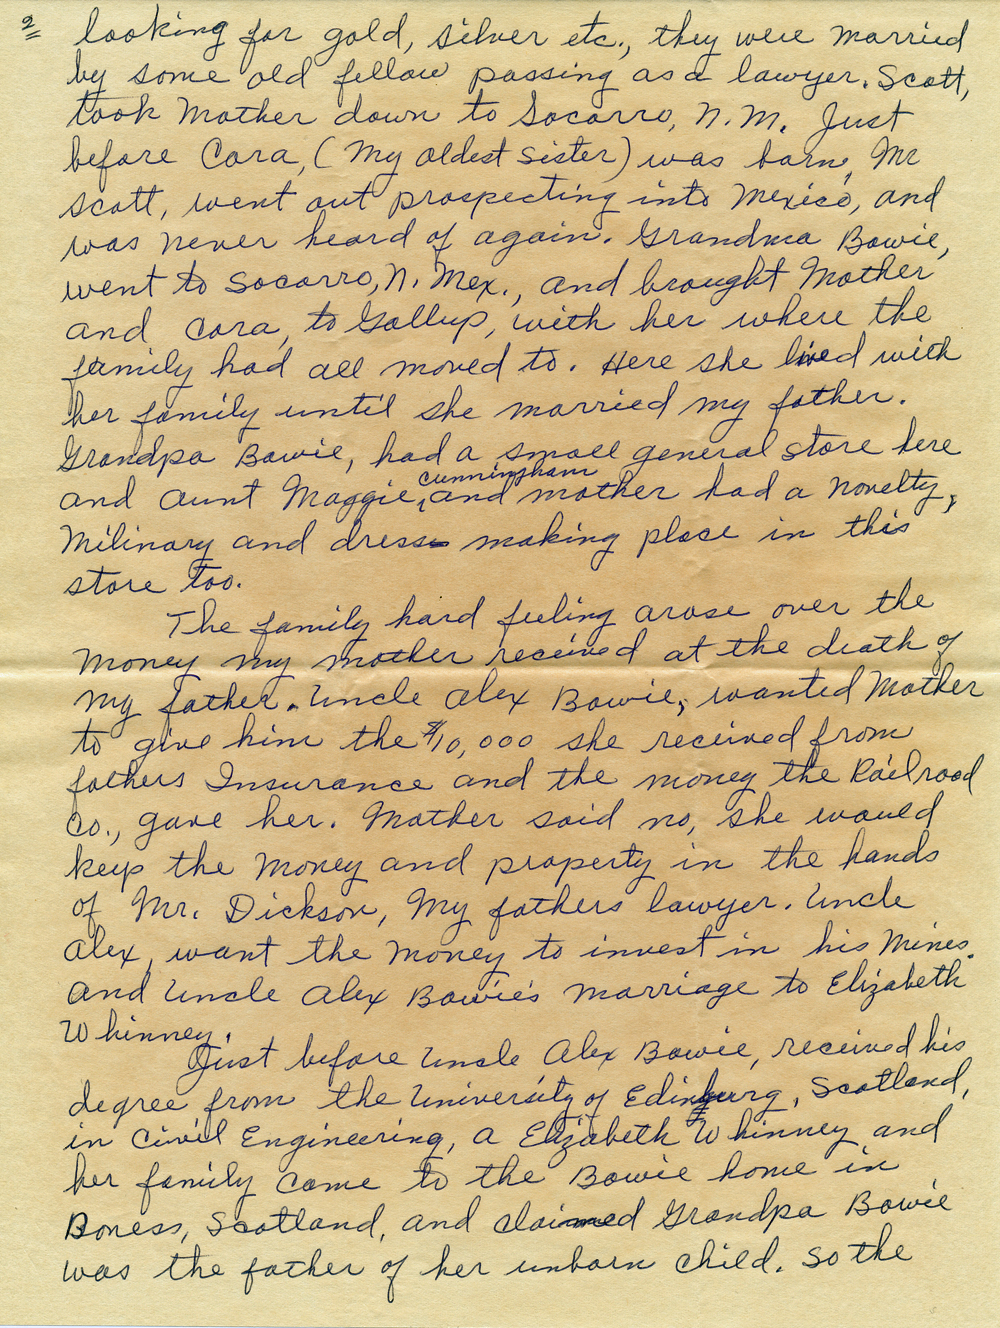 2
looking for gold, silver etc., they were married
by some old fellow passing as a lawyer. Scott,
took Mother down to Socorro, N.M. Just
before Cora, (My oldest sister) was born, Mr
Scott, went out prospecting into Mexico, and
was never heard of again. Grandma Bowie,
went to Socorro, N. Mex., and brought Mother
and Cora, to Gallup, with her where the
family had all moved to. Here she lived with
her family until she married my father.
Grandpa Bowie, had a small general store here
Cunningham
and aunt Maggie, and mother had a novelty,
Milinary and dress making place in this
store too.
The family hard feeling arose over the
Money my mother received at the death of
my father. Uncle Alex Bowie, wanted Mother
to give him the $10,000 she received from
fathers Insurance and the money the Railroad
Co., gave her. Mother said no, she would
keep the money and property in the hands
of Mr. Dickson, My fathers lawyer. Uncle
Alex, want the money to invest in his Mines.
And Uncle Alex Bowie's marriage to Elizabeth
Whinney.
Just before Uncle Alex Bowie, received his
degree from the University of Edinburg, Scotland,
in Civil Engineering, a Elizabeth Whinney and
her family came to the Bowie home in
Boness, Scotland, and claimed Grandpa Bowie
was the father of her unborn child. So the